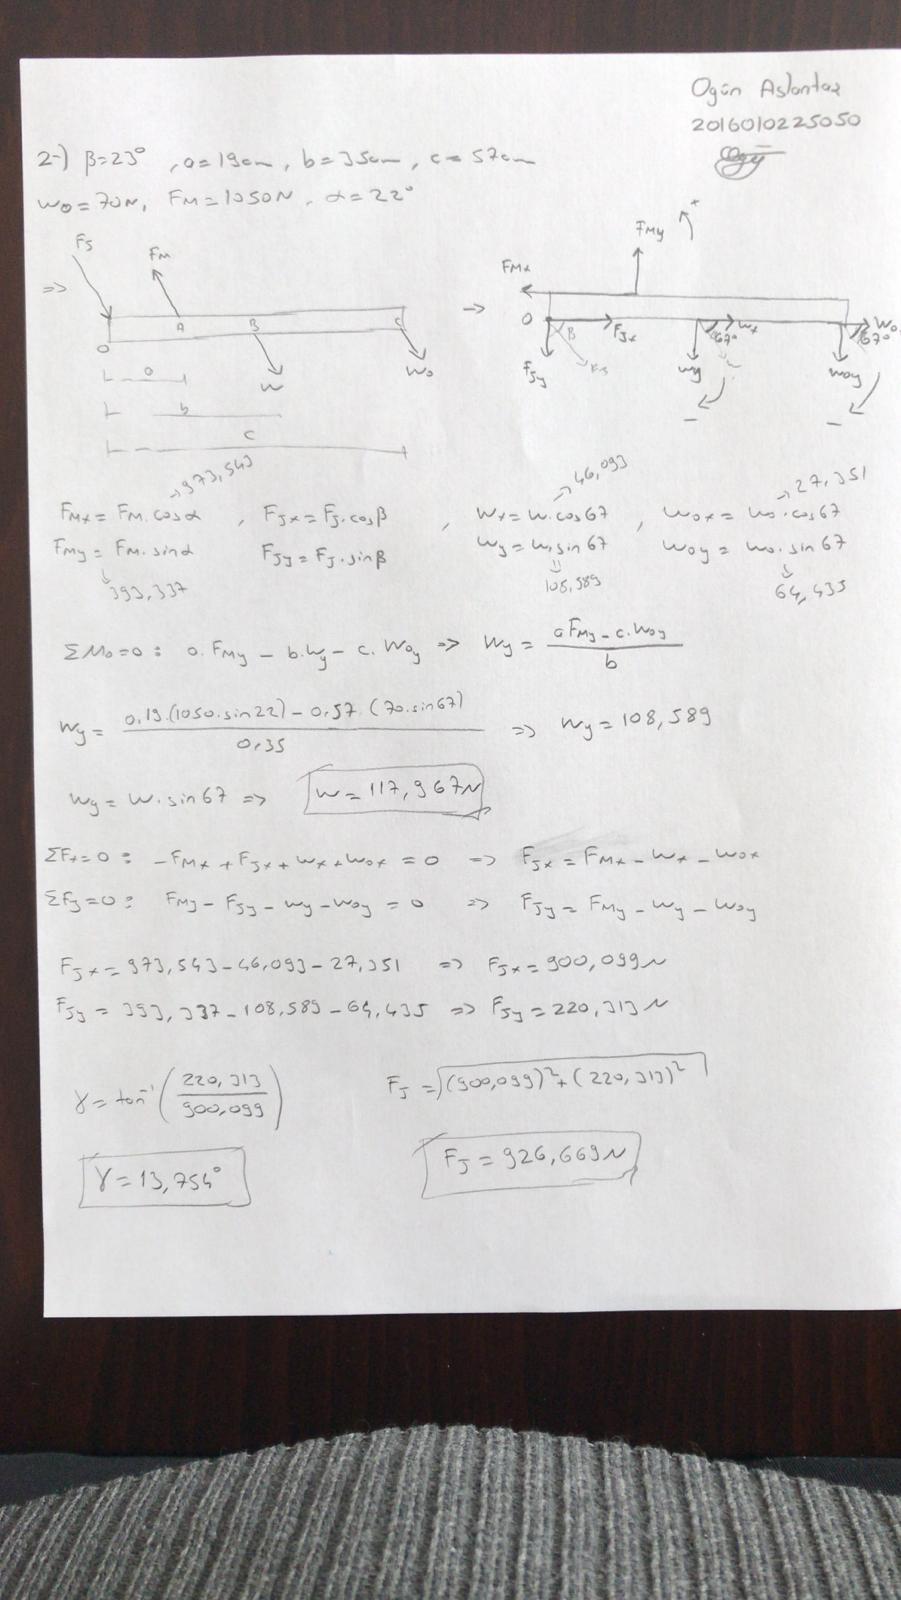 Ogün Aslantaş
2016010225050
2-) β=23° , a=19cm , b=35cm , c=57cm
W0=70N, FM=1050N , α=22°
FJ
FM
=>
O
A
B
C
W
W0
a
b
c
→
FMx
FMy
+
O
β
FJx
FJy
Wx
67°
Wy
W0x
67°
W0y
-
-
→973,543
→46,093
→27,351
FMx = FM.cosα , FJx = FJ.cosβ , Wx = W.cos67 , W0x = W0.cos67
FMy = FM.sinα FJy = FJ.sinβ Wy = W.sin67 W0y = W0.sin67
393,337
108,589
64,435
ΣM0=0 : a.FMy - b.Wy - c.W0y => Wy = aFMy - c.W0y / b
Wy = 0,19.(1050.sin22) - 0,57.(70.sin67) / 0,35 => Wy = 108,589
Wy = W.sin67 => W = 117,967N
ΣFx=0 : -FMx + FJx + Wx + W0x = 0 => FJx = FMx - Wx - W0x
ΣFy=0 : FMy - FJy - Wy - W0y = 0 => FJy = FMy - Wy - W0y
FJx = 973,543 - 46,093 - 27,351 => FJx = 900,099N
FJy = 393,337 - 108,589 - 64,435 => FJy = 220,313N
γ = tan⁻¹(220,313 / 900,099)
FJ = √(900,099)² + (220,313)²
γ = 13,754°
FJ = 926,669N